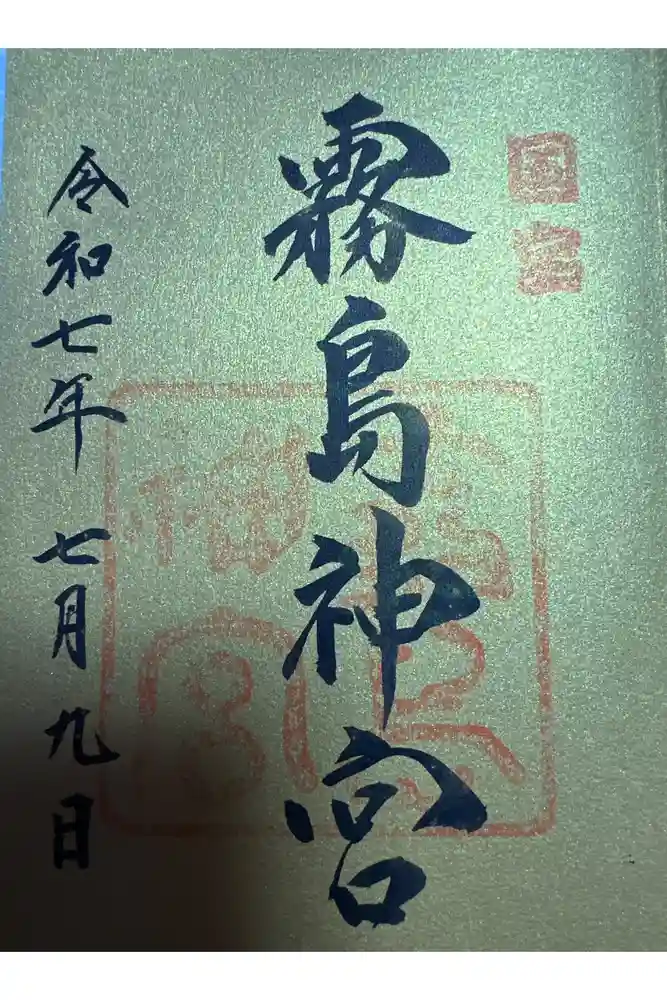 国宝
霧島神宮
令和七年 七月九日